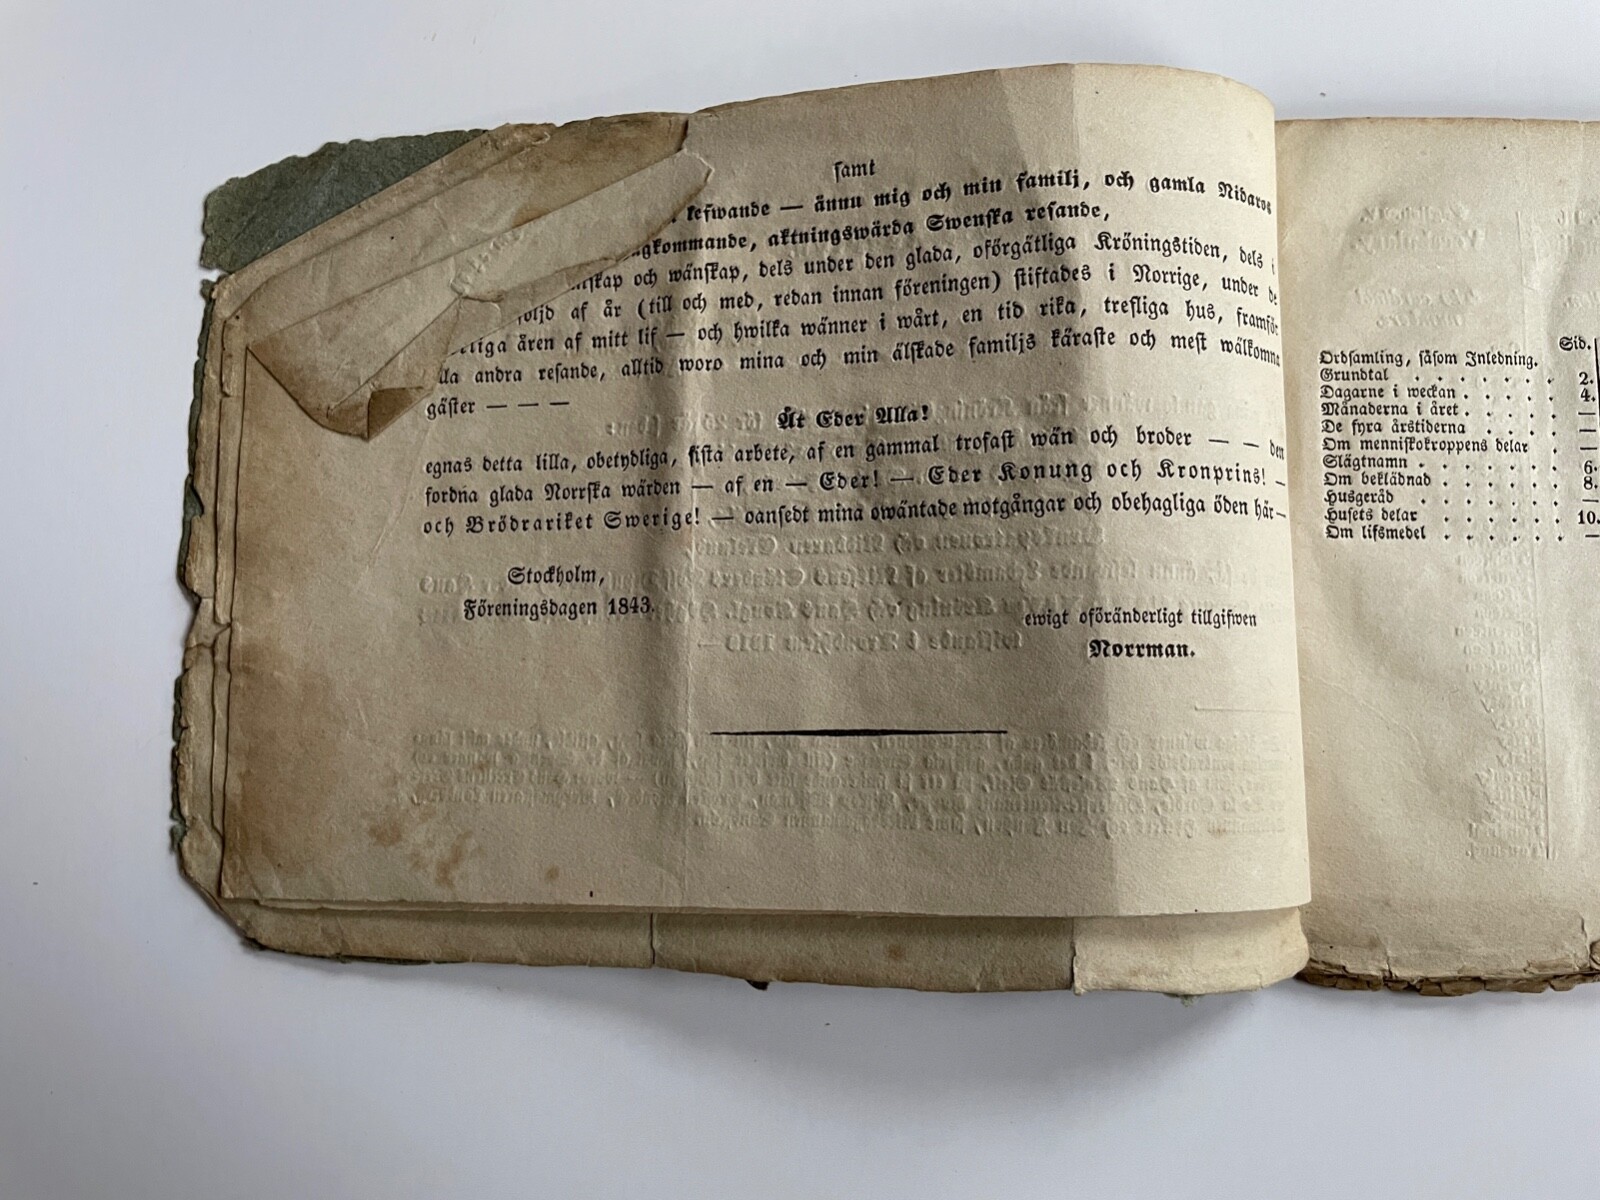 samt
lefwande — ännu mig och min familj, och gamla Nidaros
ågkommande, aktningswärda Swenska resande,
skap och wänskap, dels under den glada, oförgätliga Kröningstiden, dels i
följd af år (till och med, redan innan föreningen) stiftades i Norrige, under de
liga åren af mitt lif — och hwilka wänner i wårt, en tid rika, trefliga hus, framför
lla andra resande, alltid woro mina och min älskade familjs käraste och mest wälkomna
gäster — — —
Åt Eder Alla!
egnas detta lilla, obetydliga, sista arbete, af en gammal trofast wän och broder — — den
fordna glada Norrska wärden — af en — Eder! — Eder Konung och Kronprins! —
och Brödrariket Swerige! — oansedt mina owäntade motgångar och obehagliga öden här—
Stockholm,
Föreningsdagen 1843.
ewigt oföränderligt tillgifwen
Norrman.
Sid.
Ordsamling, såsom Inledning.
Grundtal . . . . . . . 2.
Dagarne i weckan . . . . . 4.
Månaderna i året . . . . . —
De fyra årstiderna . . . . —
Om menniskokroppens delar . —
Slägtnamn . . . . . . . 6.
Om beklädnad . . . . . . 8.
Husgeråd . . . . . . —
Husets delar . . . . . . 10.
Om lifsmedel . . . . . . —